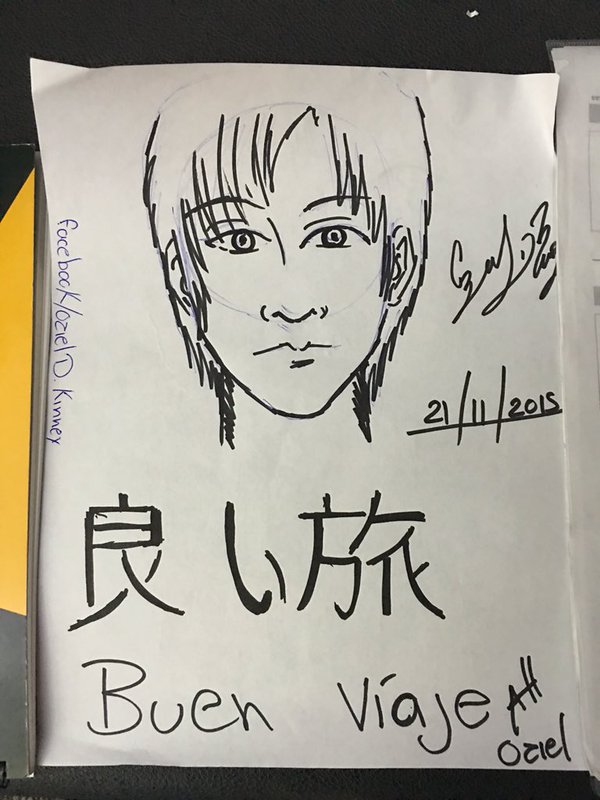 facebook/oziel D. Kinnex
21/11/2015
良い旅
Buen Viaje
Att
Oziel